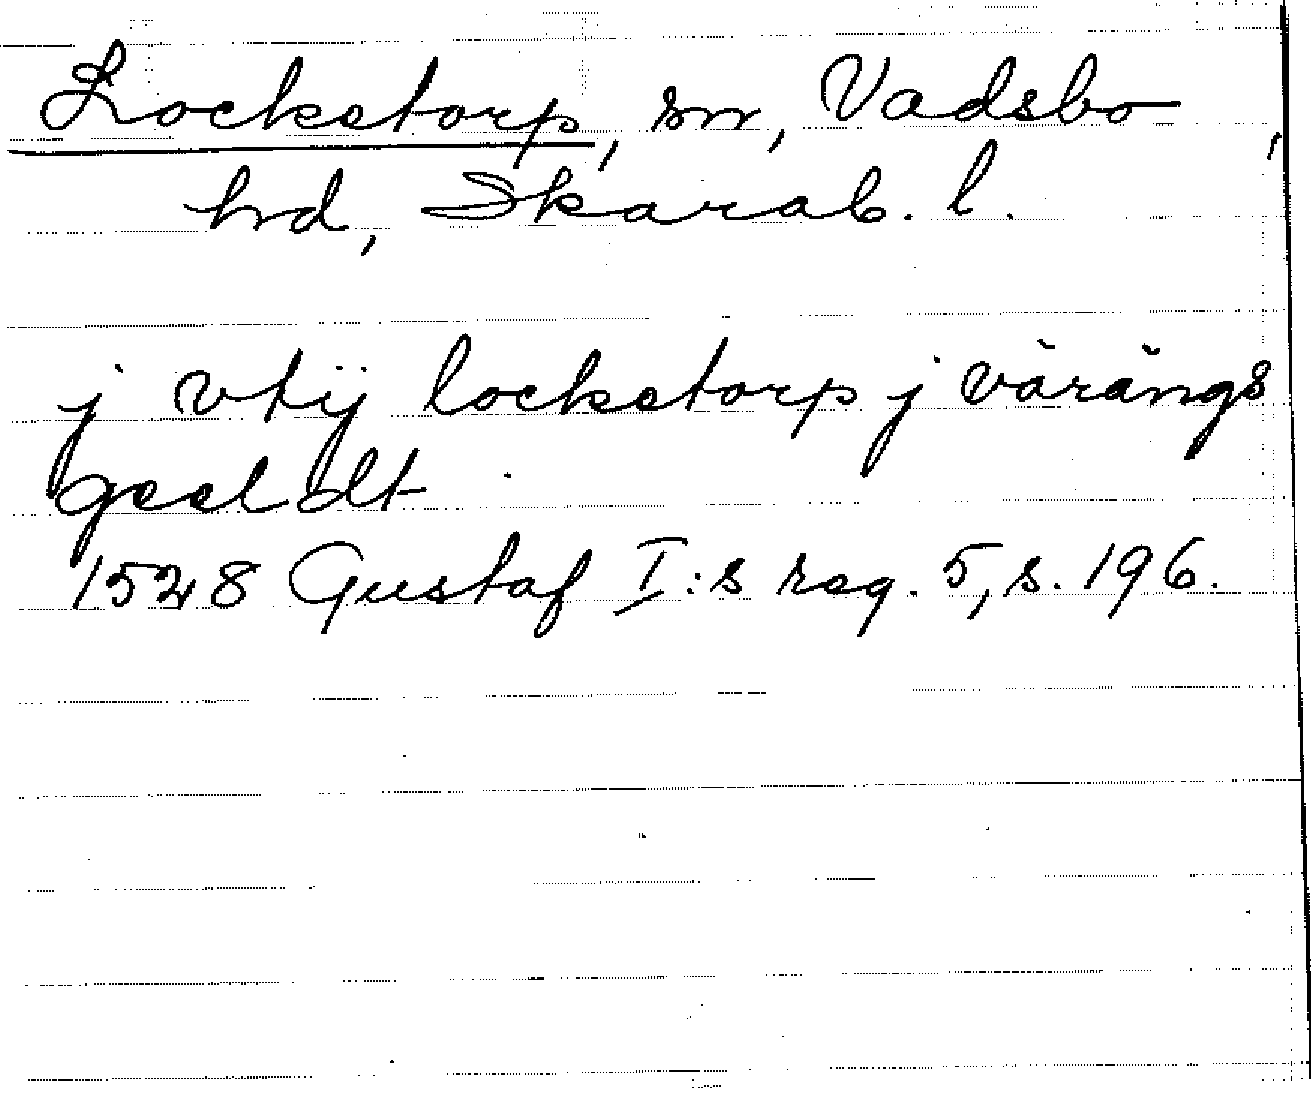 Locketorp, sn, Vadsbo
hd, Skarab. l.
j vtij locketorp j värängs
geeldt
1528 Gustaf I:s reg. 5, s. 196.